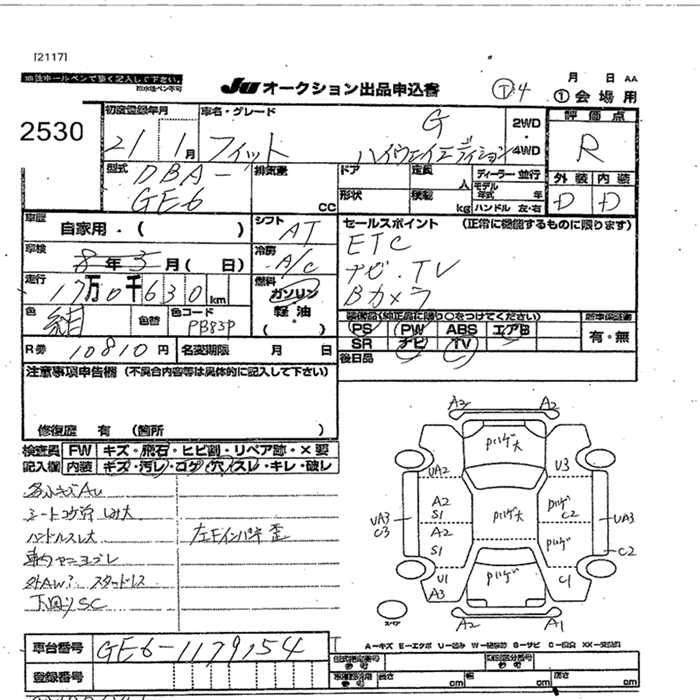 [2117]
出品店ボールペンで強く記入して下さい。
JU オークション出品申込書
T:4
月 日 AA
① 会場用
2530
初度登録年月
21 1月
車名・グレード
フィット
G
ハイウェイエディション
2WD
4WD
評価点
R
型式
DBA-
GE6
排気量
CC
ドア
定員
人
形状
積載
kg
ディーラー・並行
モデル年式 年
ハンドル 左・右
外装 内装
D D
車歴
自家用・( )
シフト
AT
セールスポイント (正常に機能するものに限ります)
ETC
ナビ・TV
Bカメラ
車検
8年3月( 日)
冷房
A/C
走行
17万0千630km
燃料
ガソリン
軽・油
( )
色
紺
色替
色コード
PB83P
装備品(純正品に限り○をつけてください)
PS PW ABS エアB
SR ナビ TV
新車保証書
有・無
R券 10810円
名変期限 月 日
後日品
注意事項申告欄 (不具合内容等は具体的に記入して下さい)
修復歴 有 (箇所 )
検査員 FW キズ・飛石・ヒビ割・リペア跡・×要
記入欄 内装 キズ・汚レ・コゲ・穴・スレ・キレ・破レ
シートコゲ穴 シミ大
ハンドルスレ大
左Fインパネ歪
外AW? スタッドレス
下廻りSC
A3 A2
Pハゲ大
UA2 U3
A2
S1
Pハゲ大
Pハゲ
C2
UA3
C3
UA3
C2
A2
S1
Pハゲ
U1
A3
Pハゲ大
C1
A2 A1
スペア
A-キズ E-エクボ U-凹み W-補修跡 S-サビ C-腐食 XX-交換済
車台番号 GE6-1179154
登録番号
長さ cm 幅 cm 高さ cm